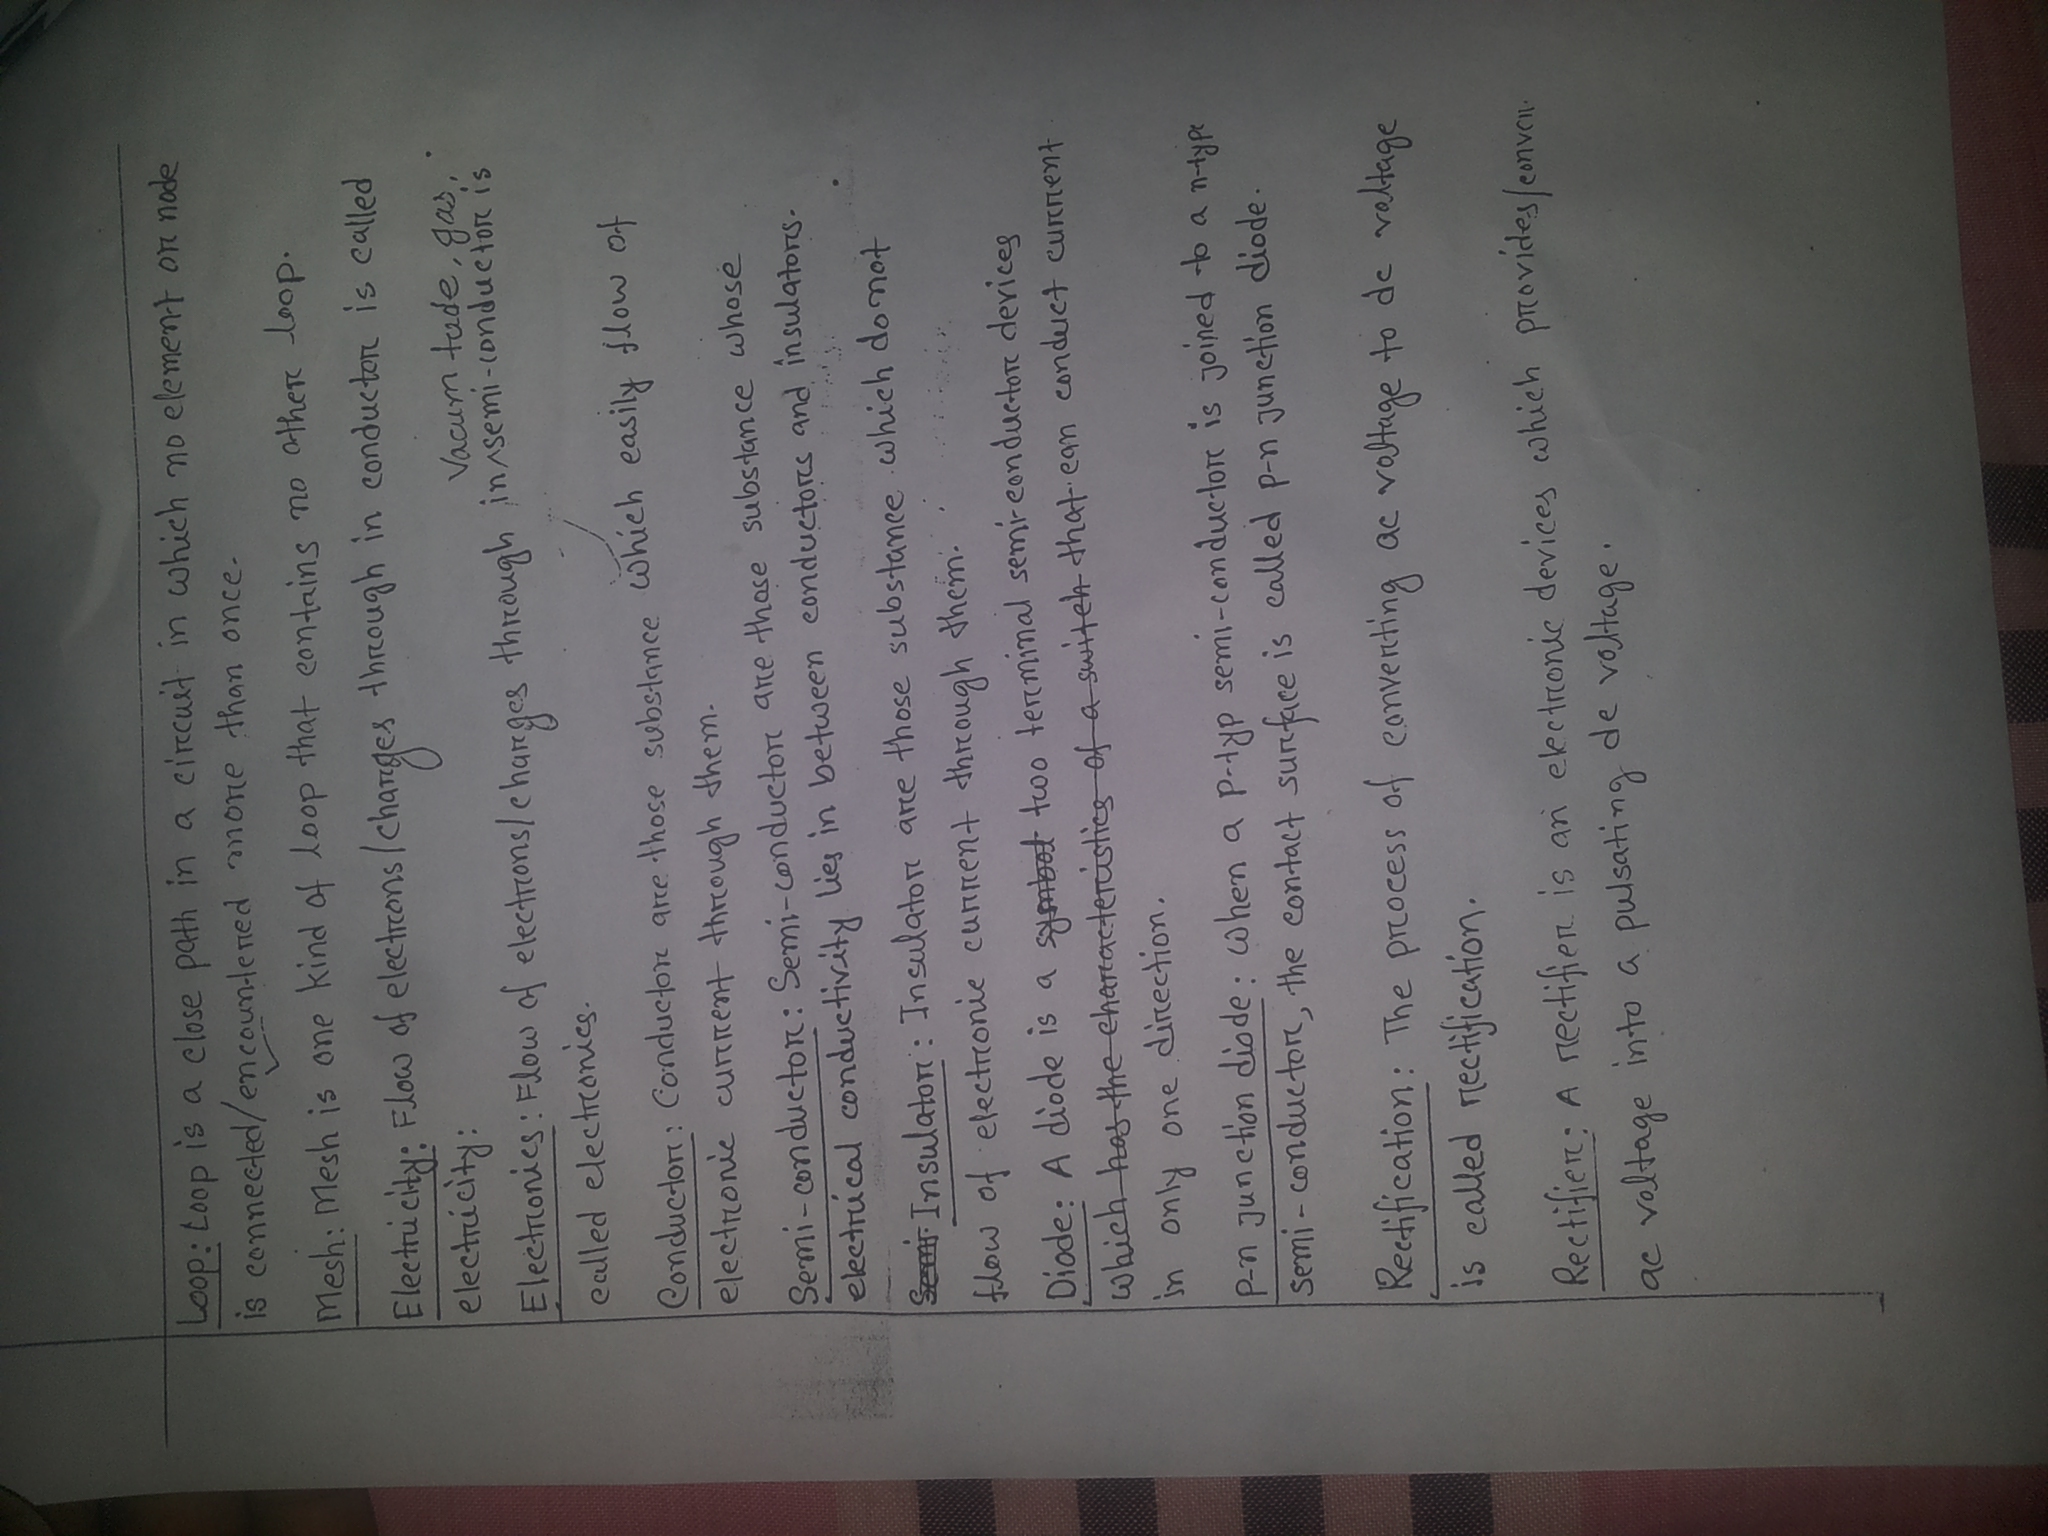 Loop: Loop is a close path in a circuit in which no element or node
is connected/encountered more than once.
Mesh: Mesh is one kind of loop that contains no other loop.
Electricity: Flow of electrons/charges through in conductor is called
electricity:
Vacum tude, gas,
Electronics: Flow of electrons/charges through in semi-conductor is
called electronics.
Conductor: Conductor are those substance which easily flow of
electronic current through them.
Semi-conductor: Semi-conductor are those substance whose
electrical conductivity lies in between conductors and insulators.
Semi- Insulator: Insulator are those substance which do not
flow of electronic current through them.
Diode: A diode is a symbol two terminal semi-conductor devices
which has the characteristics of a switch that can conduct current
in only one direction.
p-n junction diode: When a p-typ semi-conductor is joined to a n-type
semi-conductor, the contact surface is called p-n junction diode.
Rectification: The process of converting ac voltage to dc voltage
is called rectification.
Rectifier: A rectifier is an electronic devices which provides/conver
ac voltage into a pulsating dc voltage.